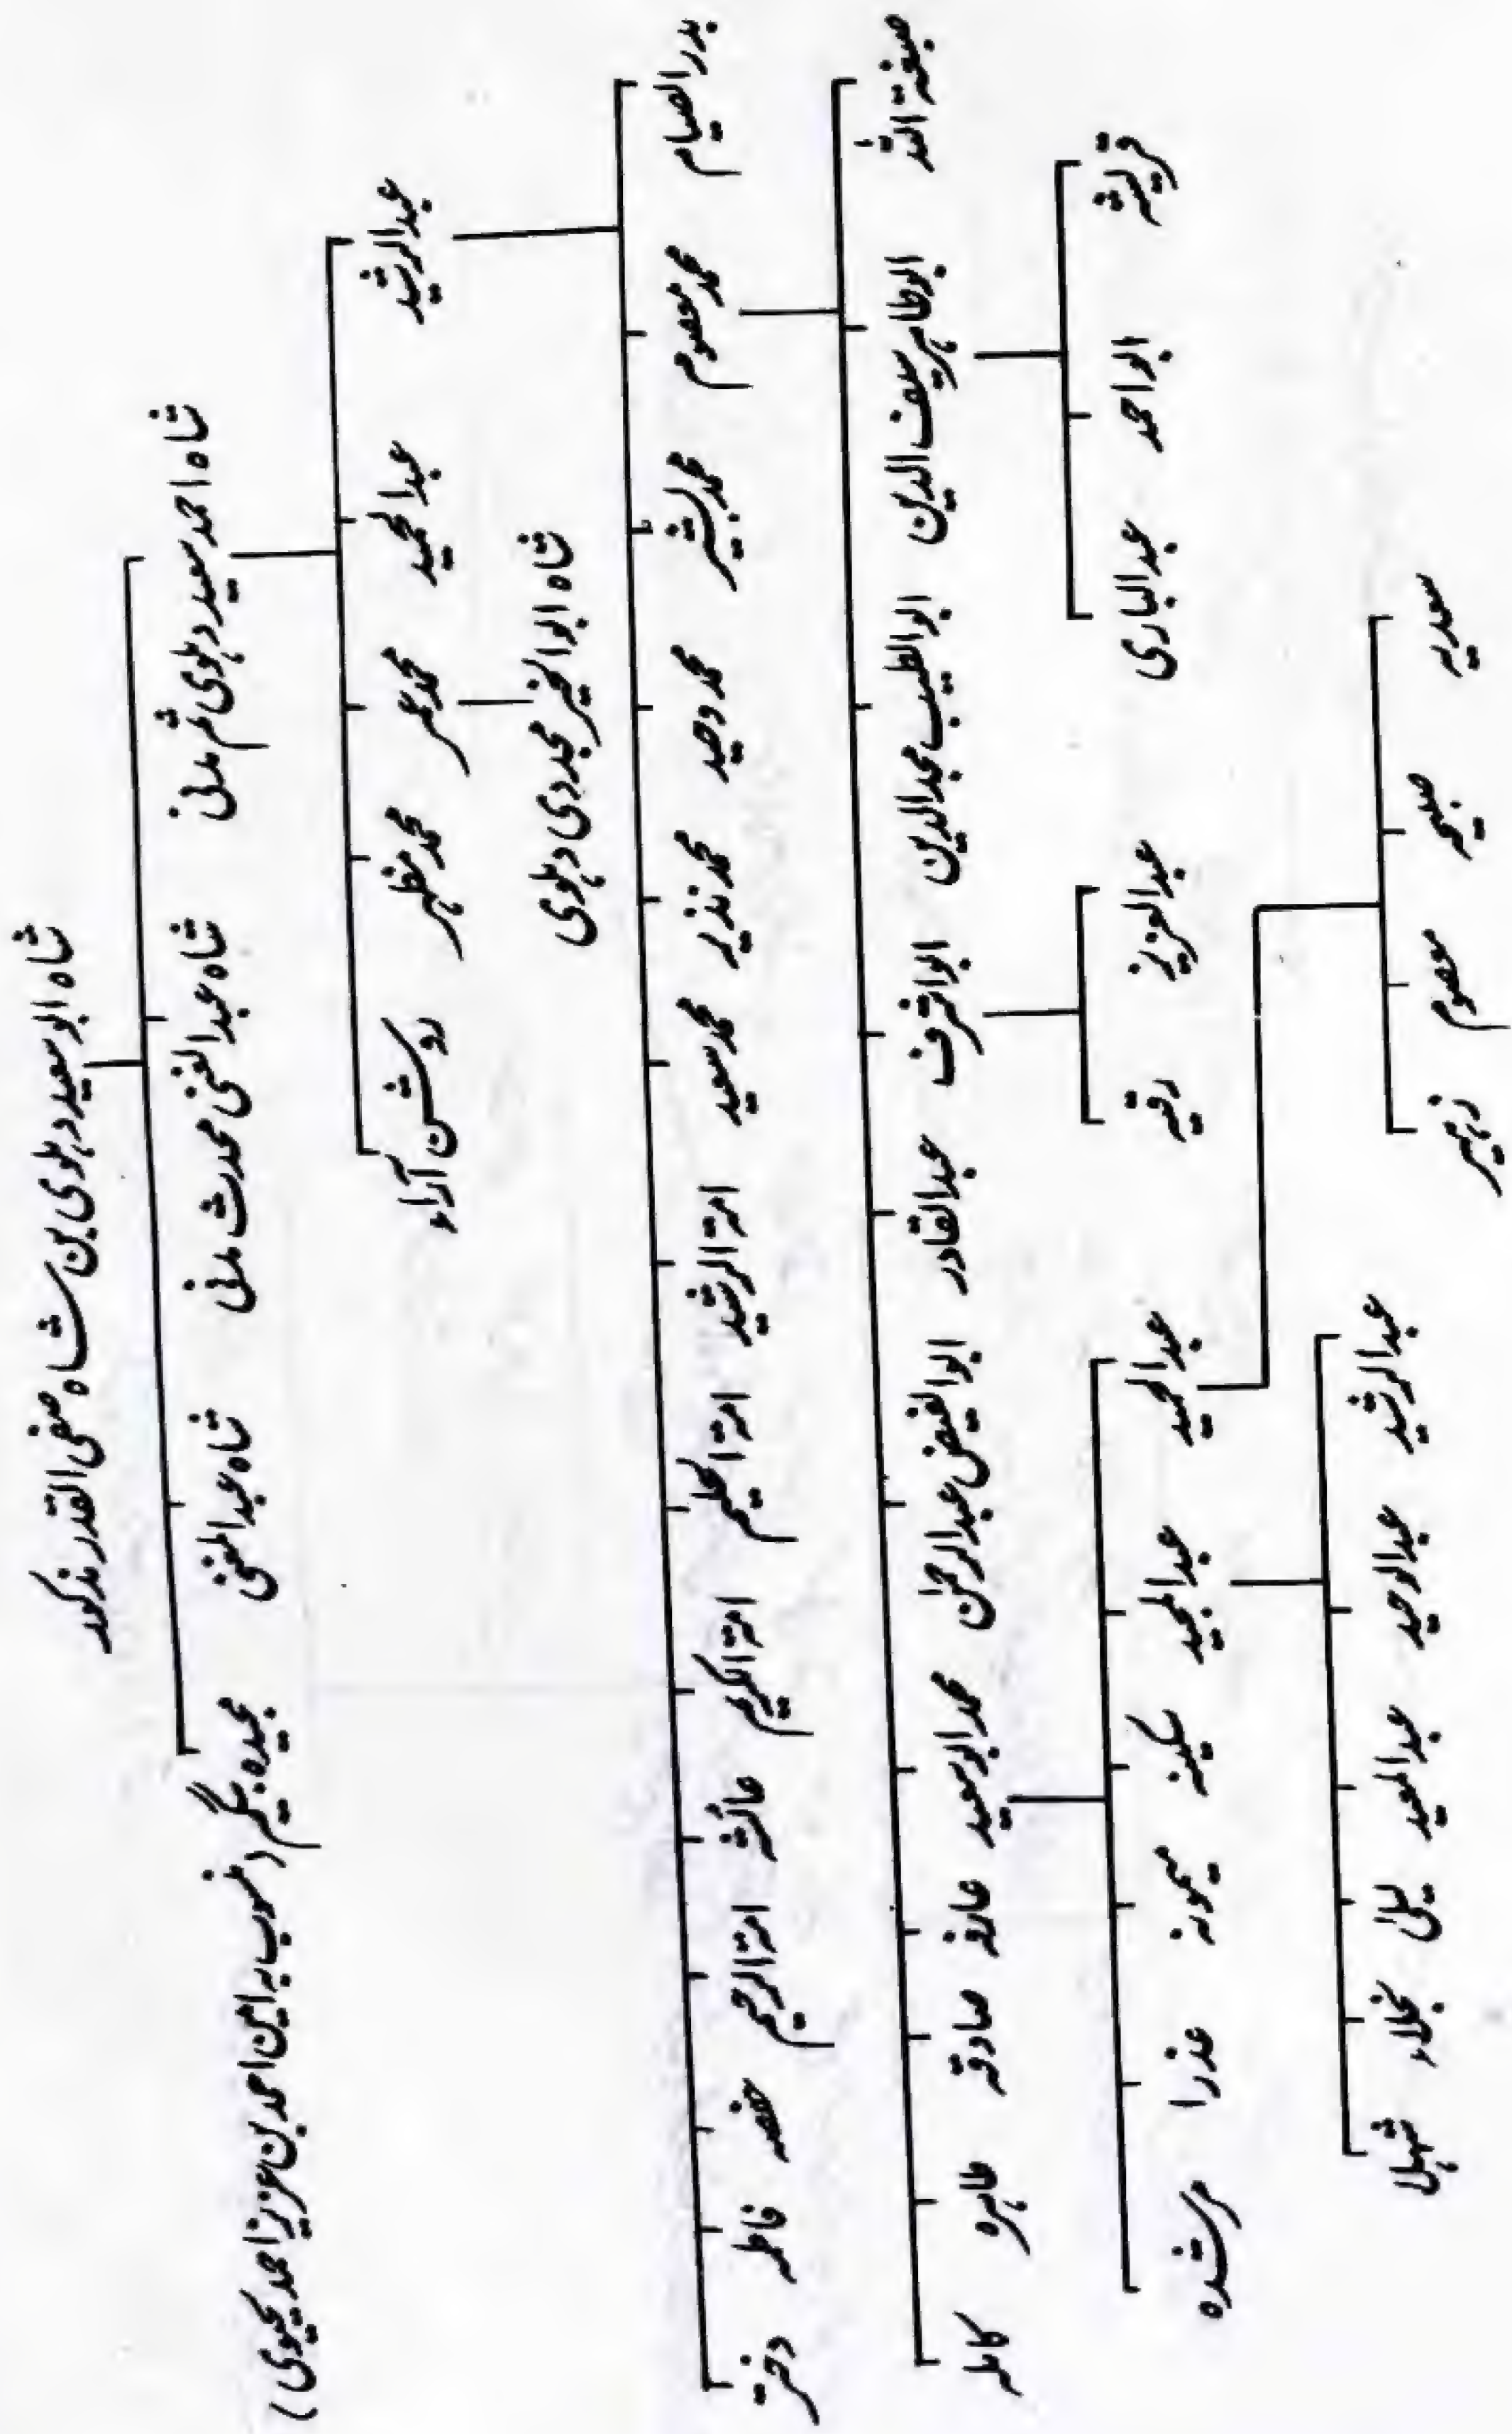 شاہ ابو سعید دہلوی بن شاہ صفی القدر مذکور
شاہ احمد سعید دہلوی ثم مدنی شاہ عبد الغنی محدث مدنی شاہ عبد المغنی مجیدہ بیگم (منسوب بہ امین احمد بن عزیز احمد یحیوی)
عبد الرشید عبد الحمید محمد عمر محمد مظہر روشن آراء
شاہ ابو الخیر مجددی دہلوی
بدر الصیام محمد معصوم محمد بشیر محمد وحید محمد نذیر محمد سعید امۃ الرشید امۃ الحلیم امۃ الکریم عائشہ امۃ الرحیم حفصہ فاطمہ دختر
صبغۃ اللہ ابو طاہر سیف الدین ابو الطیب مجد الدین ابو الشرف عبد القادر ابو الفیض عبد الرحمٰن محمد ابو سعید عارفہ صادقہ طاہرہ کاملہ
قریشہ ابو احمد عبد الباری
عبد العزیز رقیہ
عبد الحمید عبد المجید سکینہ میمونہ عذرا مرشدہ
سعدیہ صبیحہ معصوم زہیر
عبد الرشید عبد الوحید عبد المعید لیلیٰ نجلاء شہلا